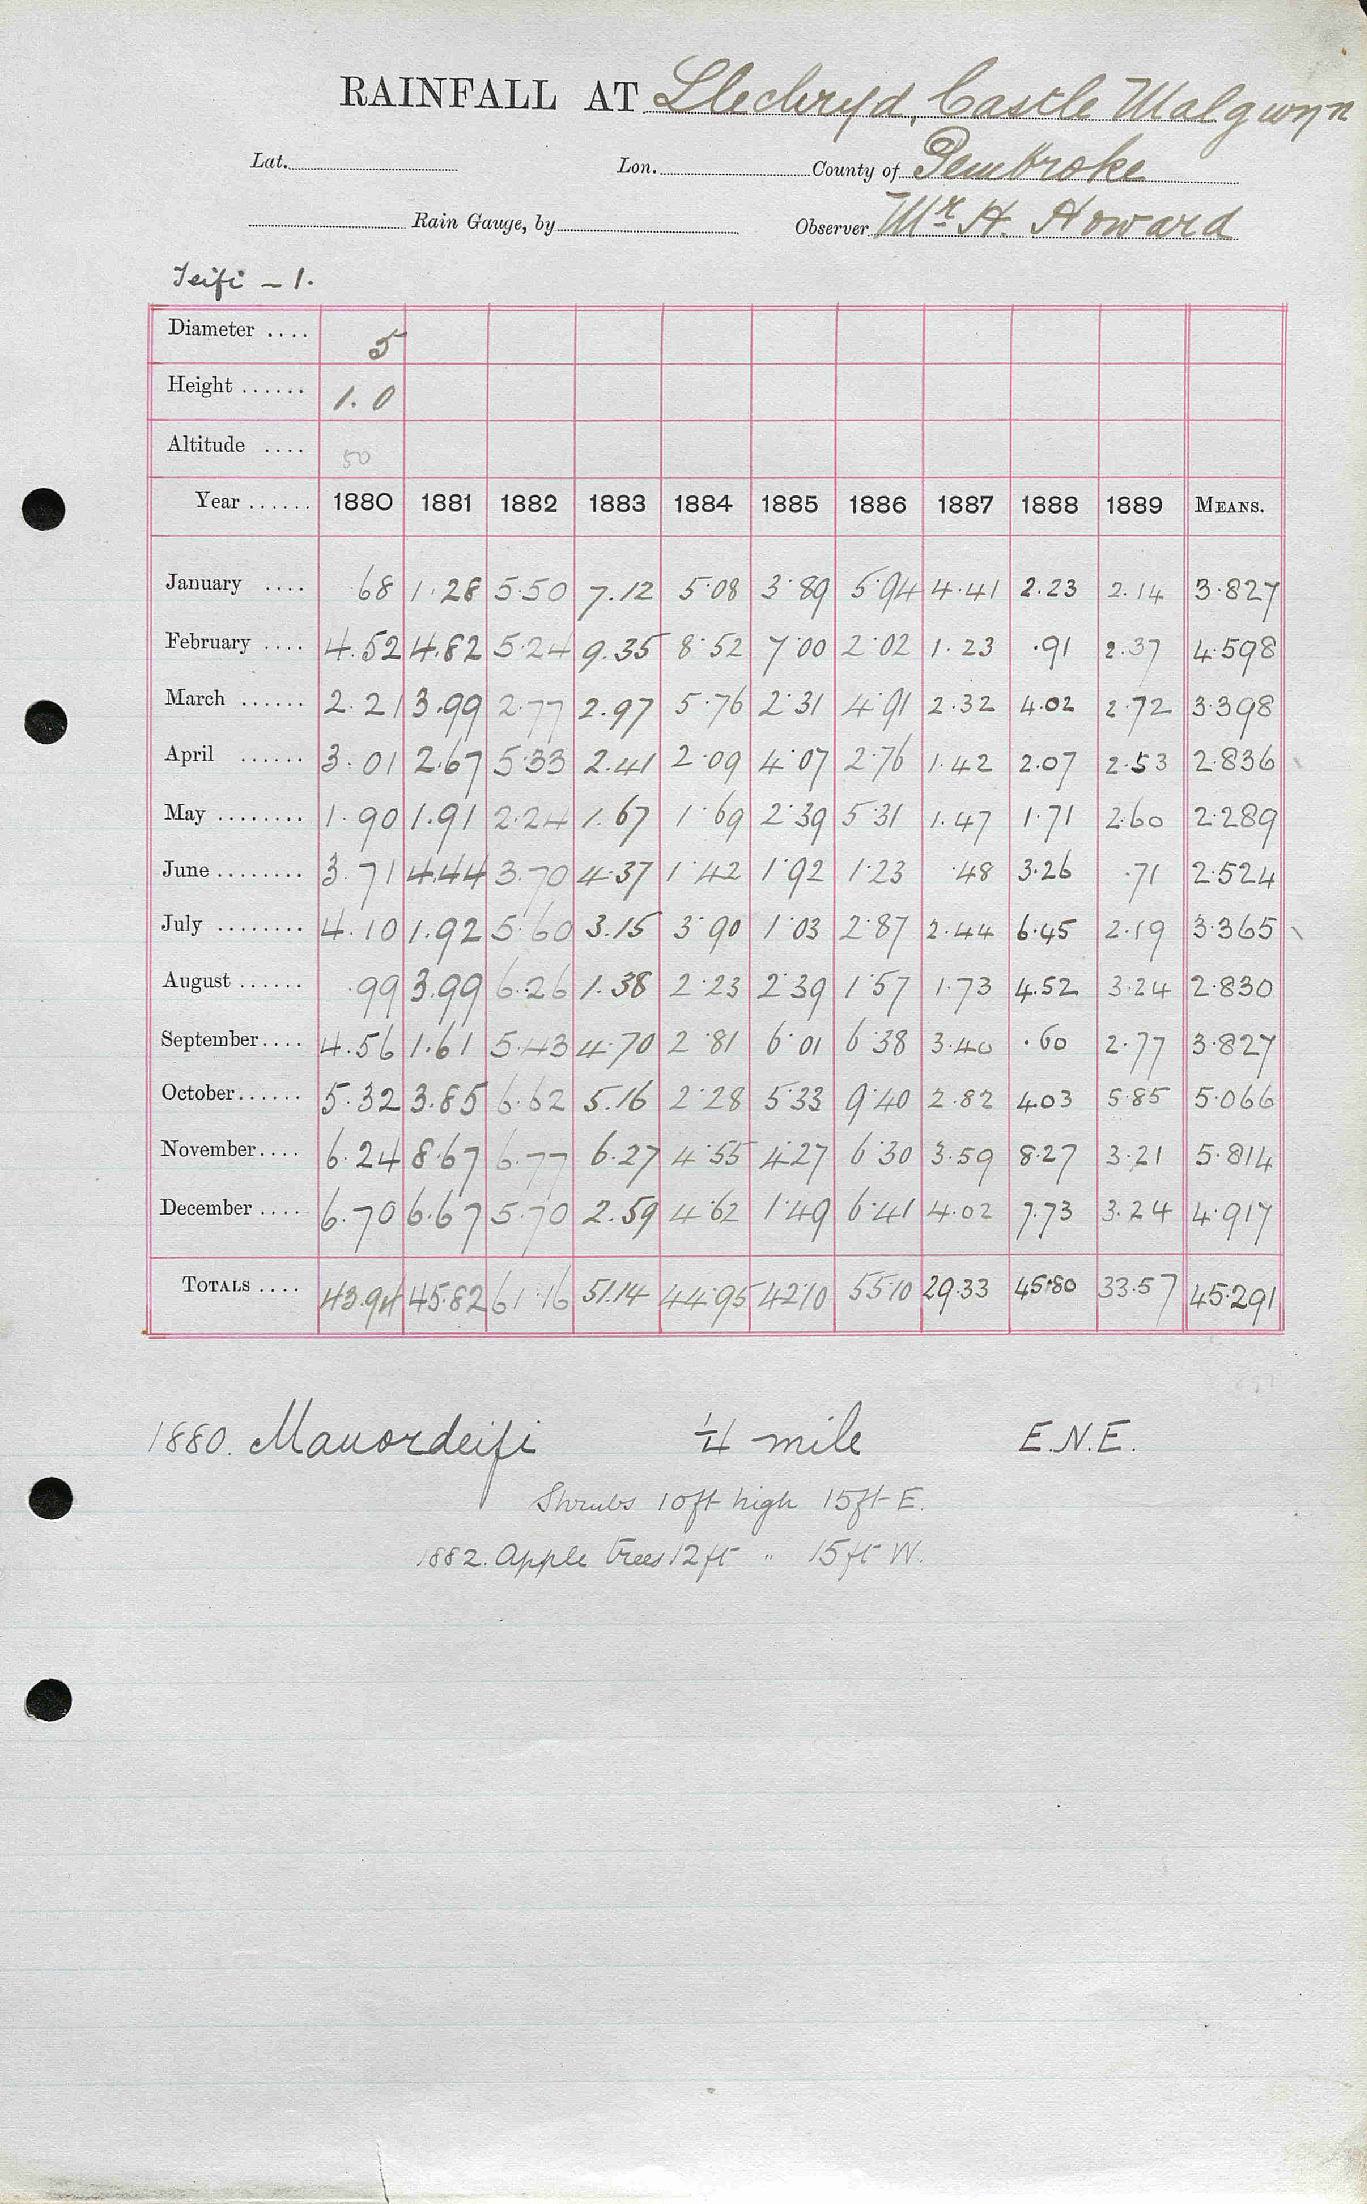 RAINFALL AT Llechryd, Castle Malgwyn
Lat. Lon. County of Pembroke
Rain Gauge, by Observer Mr H. Howard
Teifi – 1.
Diameter .... 5
Height ...... 1.0
Altitude .... 50
Year ...... 1880 1881 1882 1883 1884 1885 1886 1887 1888 1889 MEANS.
January .... .68 1.28 5.50 7.12 5.08 3.89 5.94 4.41 2.23 2.14 3.827
February .... 4.52 4.82 5.24 9.35 8.52 7.00 2.02 1.23 .91 2.37 4.598
March ...... 2.21 3.99 2.77 2.97 5.76 2.31 4.91 2.32 4.02 2.72 3.398
April ...... 3.01 2.67 5.33 2.41 2.09 4.07 2.76 1.42 2.07 2.53 2.836
May ........ 1.90 1.91 2.24 1.67 1.69 2.39 5.31 1.47 1.71 2.60 2.289
June ........ 3.71 4.44 3.70 4.37 1.42 1.92 1.23 .48 3.26 .71 2.524
July ........ 4.10 1.92 5.60 3.15 3.90 1.03 2.87 2.44 6.45 2.19 3.365
August ...... .99 3.99 6.26 1.38 2.23 2.39 1.57 1.73 4.52 3.24 2.830
September .... 4.56 1.61 5.43 4.70 2.81 6.01 6.38 3.40 .60 2.77 3.827
October ...... 5.32 3.85 6.62 5.16 2.28 5.33 9.40 2.82 4.03 5.85 5.066
November .... 6.24 8.67 6.77 6.27 4.55 4.27 6.30 3.59 8.27 3.21 5.814
December .... 6.70 6.67 5.70 2.59 4.62 1.49 6.41 4.02 7.73 3.24 4.917
TOTALS .... 43.94 45.82 61.16 51.14 44.95 42.10 55.10 29.33 45.80 33.57 45.291
1880. Manordeifi ¼ mile E.N.E.
Shrubs 10ft high 15ft E.
1882. Apple trees 12ft " 15ft W.